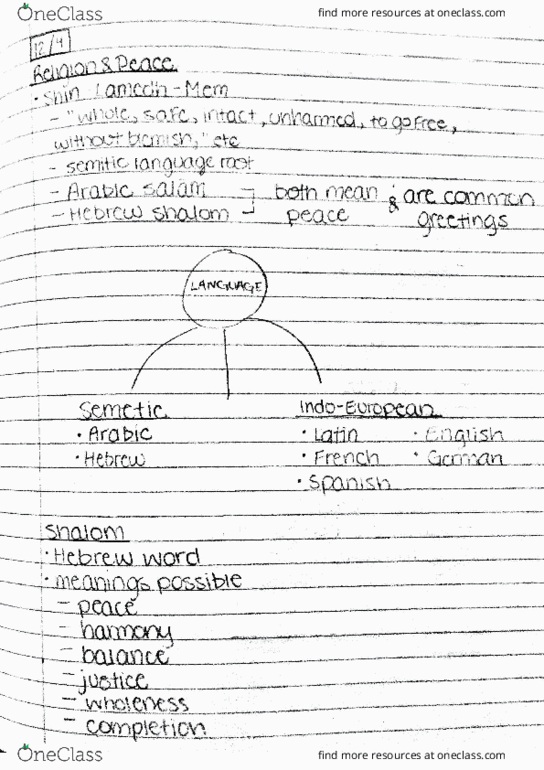 OneClass find more resources at oneclass.com
12/4
Religion & Peace
• Shin Lamedh-Mem
- "whole, safe, intact, unharmed, to go free,
without blemish," etc
- semitic language root
- Arabic salam both mean & are common
- Hebrew shalom peace greetings
LANGUAGE
Semetic Indo-European
• Arabic • Latin • English
• Hebrew • French • German
• Spanish
Shalom
• Hebrew word
• meanings possible
- peace
- harmony
- balance
- justice
- wholeness
- completion
OneClass find more resources at oneclass.com